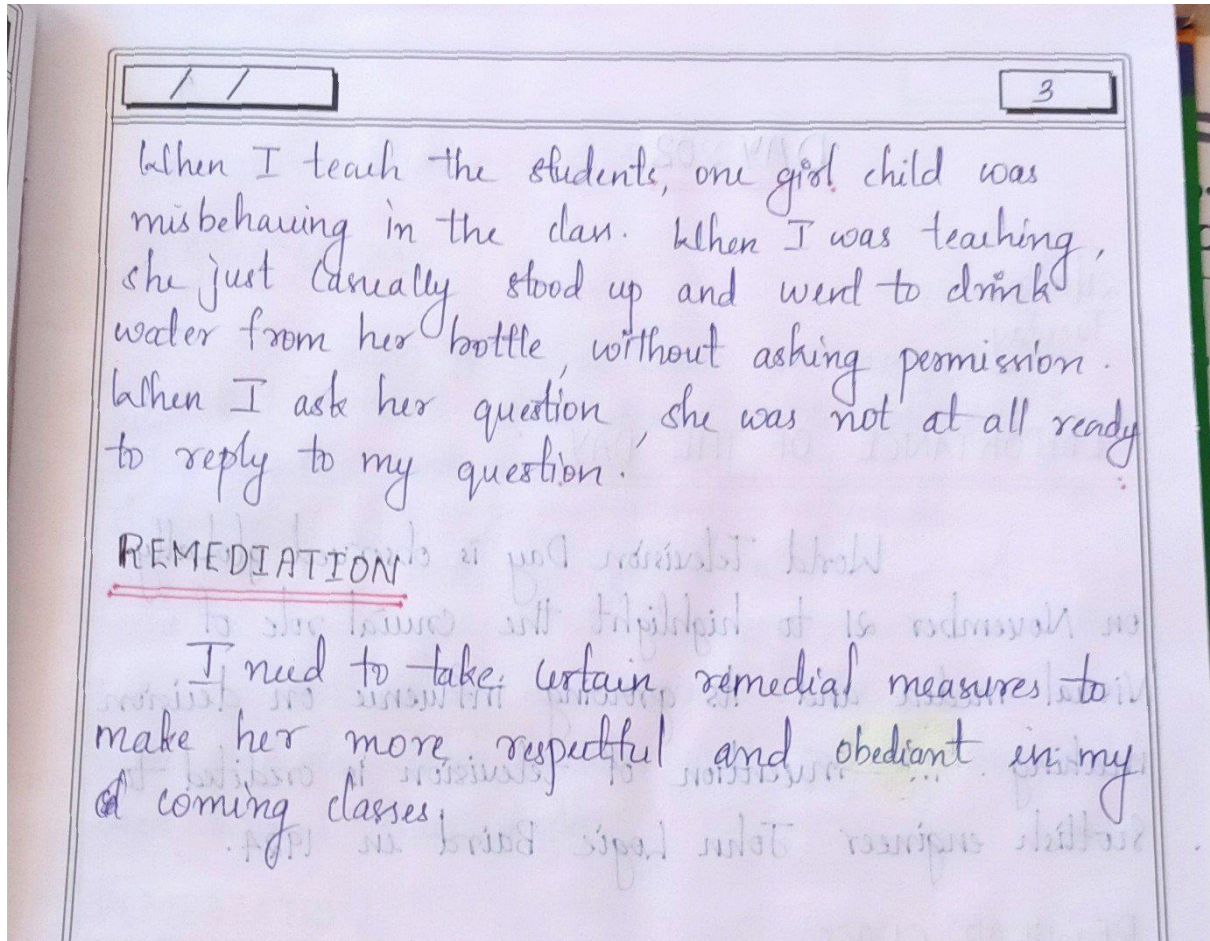 / /
3
When I teach the students, one girl child was
misbehaving in the class. When I was teaching,
she just casually stood up and went to drink
water from her bottle, without asking permission.
When I ask her question, she was not at all ready
to reply to my question.
REMEDIATION
I need to take certain remedial measures to
make her more respectful and obediant in my
coming classes.